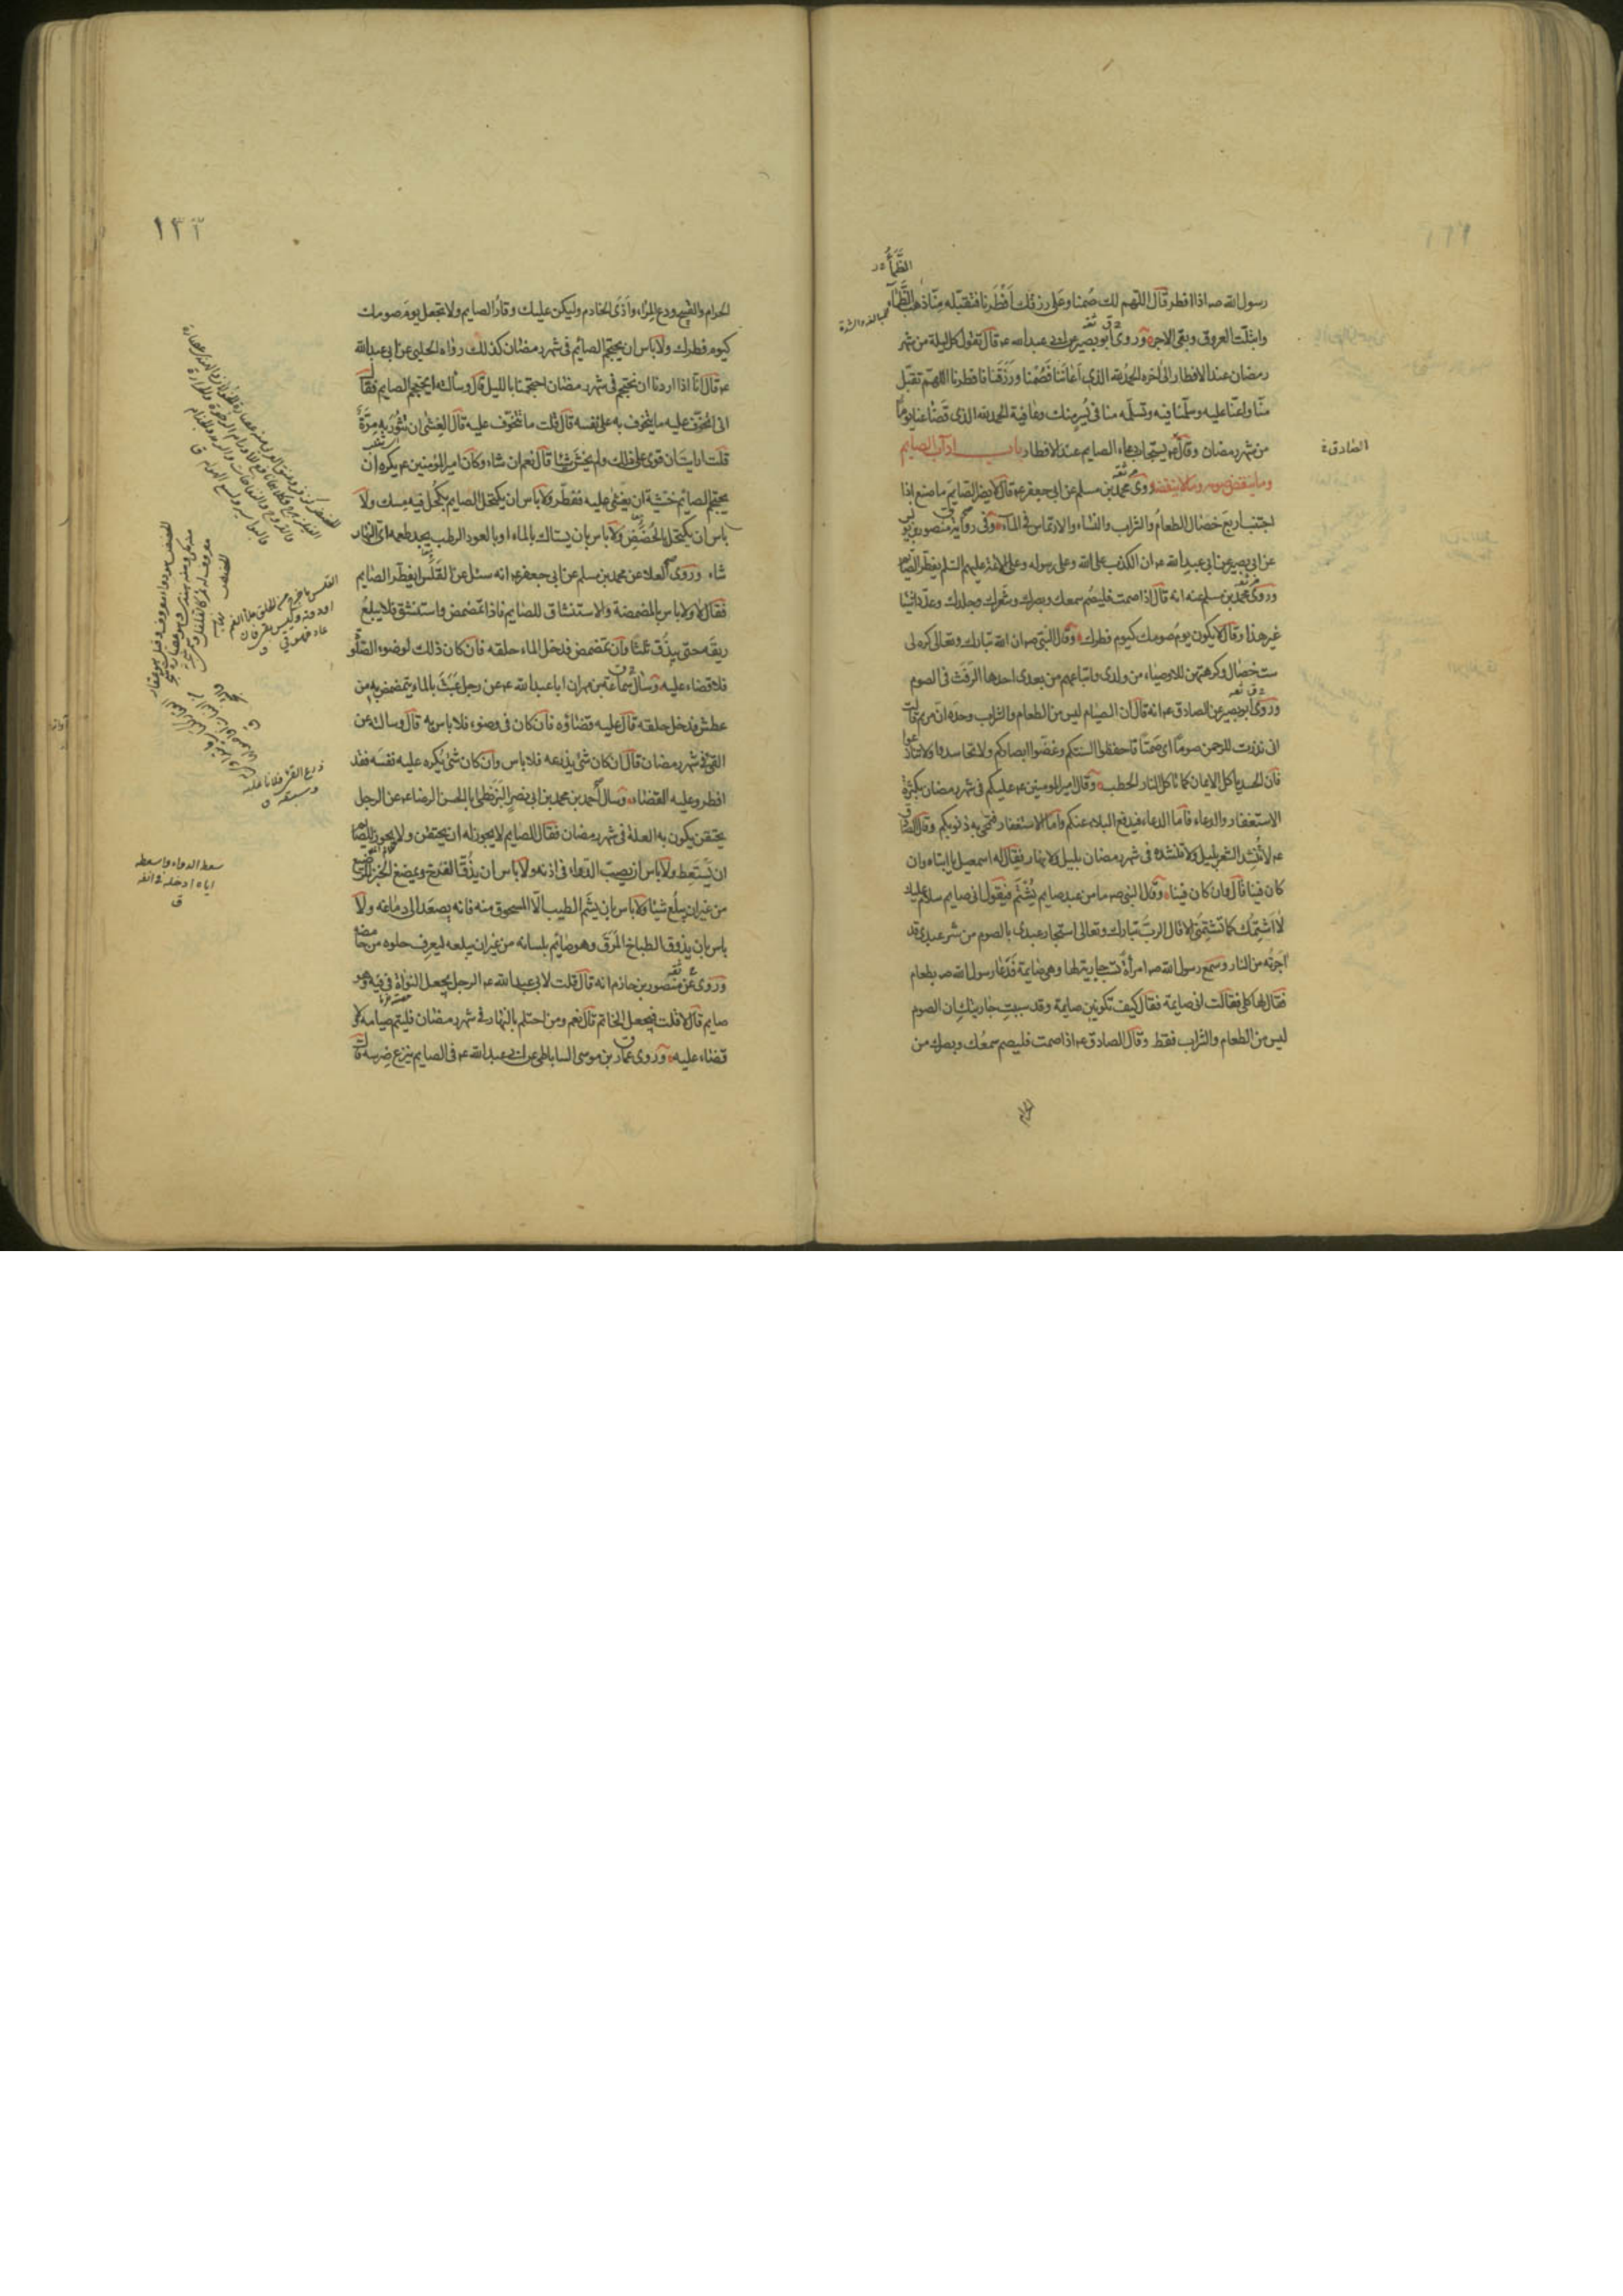 رسول الله صـ اذا افطر قال اللهم لك صمنا وعلى رزقك افطرنا فتقبله منا ذهب الظماء
وابتلت العروق وبقى الاجر وروى ابو بصير عن ابى عبدالله عـ قال تقول كل ليلة من شهر
رمضان عند الافطار الى اخره الحمد لله الذى اعاننا فصمنا ورزقنا فافطرنا اللهم تقبل
منا واعنا عليه وسلمنا فيه وتسلمه منا فى يسر منك وعافية الحمد لله الذى قضى عنا يوما
من شهر رمضان وقال عـ يستجاب دعاء الصايم عند الافطار باب اداب الصايم
وما ينقض صومه وما لا ينقضه روى محمد بن مسلم عن ابى جعفر عـ قال لا يضر الصايم ما صنع اذا
اجتنب اربع خصال الطعام والشراب والنساء والارتماس فى الماء وفى رواية منصور بن يونس
عن ابى بصير عن ابى عبد الله عـ ان الكذب على الله وعلى رسوله وعلى الائمة عليهم السلم يفطر الصايم
وروى محمد بن مسلم عنه انه قال اذا صمت فليصم سمعك وبصرك وشعرك وجلدك وعدد اشيا
غير هذا وقال لا يكون يوم صومك كيوم فطرك وقال النبى صـ ان الله تبارك وتعالى كره لى
ست خصال وكرهتهن للاوصياء من ولدى واتباعهم من بعدى احدها الرفث فى الصوم
وروى ابو بصير عن الصادق عـ انه قال ان الصيام ليس من الطعام والشراب وحده ان مريم قالت
انى نذرت للرحمن صوما اى صمتا فاحفظوا السنتكم وغضوا ابصاركم ولا تحاسدوا ولا تنازعوا
فان الحسد ياكل الايمان كما تاكل النار الحطب وقال امير المومنين عـ عليكم فى شهر رمضان بكثرة
الاستغفار والدعاء فاما الدعاء فيدفع البلاء عنكم واما الاستغفار فتمحى به ذنوبكم وقال الصادق
عـ لا تنشد الشعر بليل ولا تنشده فى شهر رمضان بليل ولا نهار فقال له اسمعيل يا ابتاه وان
كان فينا قال وان كان فينا وقال النبى صـ ما من عبد صايم يشتم فيقول انى صايم سلام عليك
لا اشتمك كما تشتمنى الا قال الرب تبارك وتعالى استجار عبدى بالصوم من شر عبدى قد
اجرته من النار وسمع رسول الله صـ امرأة تسب جارية لها وهى صايمة فدعا رسول الله صـ بطعام
فقال لها كلى فقالت انى صايمة فقال كيف تكونين صايمة وقد سببت جاريتك ان الصوم
ليس من الطعام والشراب فقط وقال الصادق عـ اذا صمت فليصم سمعك وبصرك من
الصادق ع
١٣٢
الحرام والقبيح ودع المراء واذى الخادم وليكن عليك وقار الصايم ولا تجعل يوم صومك
كيوم فطرك ولا باس ان يحتجم الصائم فى شهر رمضان كذلك رواه الحلبى عن ابى عبد الله
عـ قال انا اذا اردنا ان نحتجم فى شهر رمضان احتجمنا بالليل قال وسألته ايحتجم الصايم فقال
انى اتخوف عليه ما يتخوف به على نفسه قال قلت ما تتخوف عليه قال الغشى ان تثور به مرة
قلت ارايت ان قوى على ذلك ولم يخش شيئا قال نعم ان شاء وكان امير المومنين عـ يكره ان
يحتجم الصايم خشية ان يغشى عليه فيفطر ولا باس ان يكتحل الصايم بكحل فيه مسك ولا
باس ان يكتحل بالحضض ولا باس بان يستاك بالماء او بالعود الرطب يجد طعمه اى النهار
شاء وروى العلا عن محمد بن مسلم عن ابى جعفر عـ انه سئل عن القلس ايفطر الصايم
فقال لا ولا باس بالمضمضة والاستنشاق للصايم فاذا تمضمض واستنشق فلا يبلع
ريقه حتى يبزق ثلثا وان تمضمض فدخل الماء حلقه فان كان ذلك لوضوء الصلوة
فلا قضاء عليه وسأل سماعة بن مهران ابا عبد الله عـ عن رجل عبث بالماء يتمضمض به من
عطش فدخل حلقه قال عليه قضاؤه فان كان فى وضوء فلا باس به قال وسالته عن
القئ فى شهر رمضان قال ان كان شئ يذرعه فلا باس وان كان شئ يكره عليه نفسه فقد
افطر وعليه القضاء وسال احمد بن محمد بن ابى نصر البزنطى ابا الحسن الرضا عـ عن الرجل
يحتقن يكون به العلة فى شهر رمضان فقال الصايم لا يجوز له ان يحتقن ولا يجوز للصايم
ان يستعط ولا باس ان يصب الدواء فى اذنه ولا باس ان يزق الفرخ ويمضغ الخبز للرضيع
من غير ان يبلع شيئا ولا باس بان يشم الطيب الا المسحوق منه فانه يصعد الى دماغه ولا
باس بان يذوق الطباخ المرق وهو صائم بلسانه من غير ان يبلعه ليعرف حلوه من حامضه
وروى عن منصور بن حازم انه قال قلت لابى عبد الله عـ الرجل يجعل النواة فى فيه وهو
صايم قال لا قلت فيجعل الخاتم قال نعم ومن احتلم بالنهار فى شهر رمضان فليتم صيامه ولا
قضاء عليه وروى عمار بن موسى الساباطى عن ابى عبد الله عـ فى الصايم ينزع ضرسه قال
سعط الدواء واسعطه
اياه ادخله فى انفه
ق